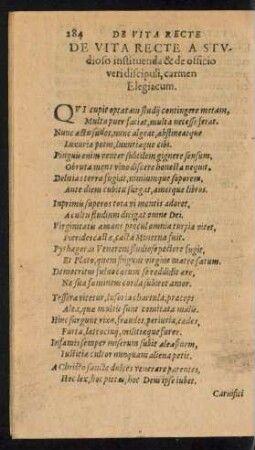 284 DE VITA RECTE
DE VITA RECTE A STV-
dioso instituenda & de officio
veri discipuli, carmen
Elegiacum.
QVI cupit optatam studij contingere metam,
Multa puer faciat, multa necesse ferat.
Nunc æstu sudet, nunc algeat, abstineatque
Luxuria potus, luxuriaque cibi.
Pinguis enim venter subtilem gignere sensum,
Obruta mens vino discere honesta nequit.
Delitias terræ fugiat, nimiumque soporem,
Ante diem cubitu surgat, ametque libros.
Inprimis superos tota vi mentis adoret,
A cultu studium dirigat omne Dei.
Virginitatis amans procul omnia turpia vitet,
Pierides castæ, casta Minerua fuit.
Pythagoras Venerem studioso pectore fugit,
Et Plato, quem fingunt virgine matre satum.
Democritus subito cæcum se reddidit ære,
Ne sua fœmineus corda subiret amor.
Tessera vitetur, lusoria chartula, præceps
Alea, quæ multis sunt comitata malis.
Hinc surgunt rixæ, fraudes, periuria, cædes,
Furta, latrociny, militiæque furor.
Infamis semper miserum subit aleа finem,
Iustitiæ cultor nunquam aliena petit.
A Christo sancte dulces venerare parentes,
Hoc lex, hoc pietas, hoc Deus ipse iubet.
Carnifici